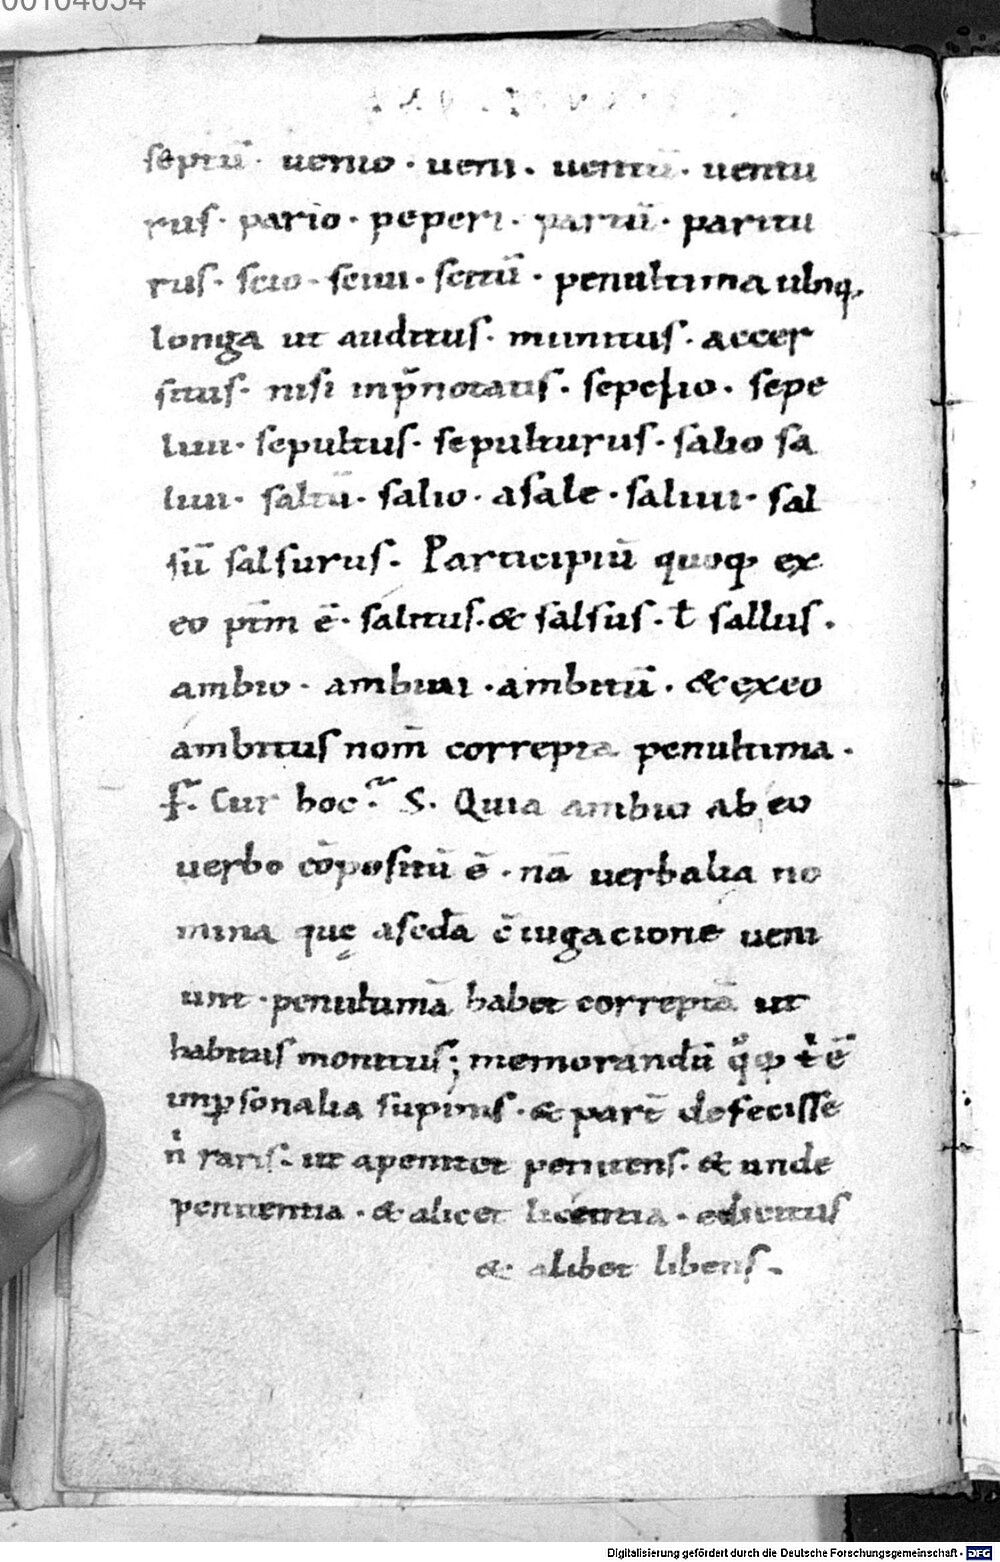 00104054
septū · uenio · ueni · uentū · uentu
rus · pario · peperi · partū · paritu
rus · scio · sciui · scitū · penultima ubiq;
longa ut auditus · munitus · accer
situs · nisi inp̄notatis · sepelio · sepe
liui · sepultus · sepulturus · salio sa
liui · saltū · salio · asale · saliui · sal
sū salsurus · Participiū quoq; ex
eo ptm̄ ē · salitus · & salsus · ł sallus ·
ambio · ambiui · ambitū · & exeo
ambitus nom̄ correpta penultima ·
F · Cur hoc · S · Quia ambio ab eo
uerbo cōpositū ē · nā uerbalia no
mina quę ascđa c̄iugacione ueni
unt · penultimā habet correptā ut
habitus monitus ; memorandū
inꝑsonalia supinis · & part̄ defecisse
n̍ raris · ut apenitet penitens · & unde
penitentia · & alicet licentia · &licitus
& alibet libens ·
Digitalisierung gefördert durch die Deutsche Forschungsgemeinschaft - DFG